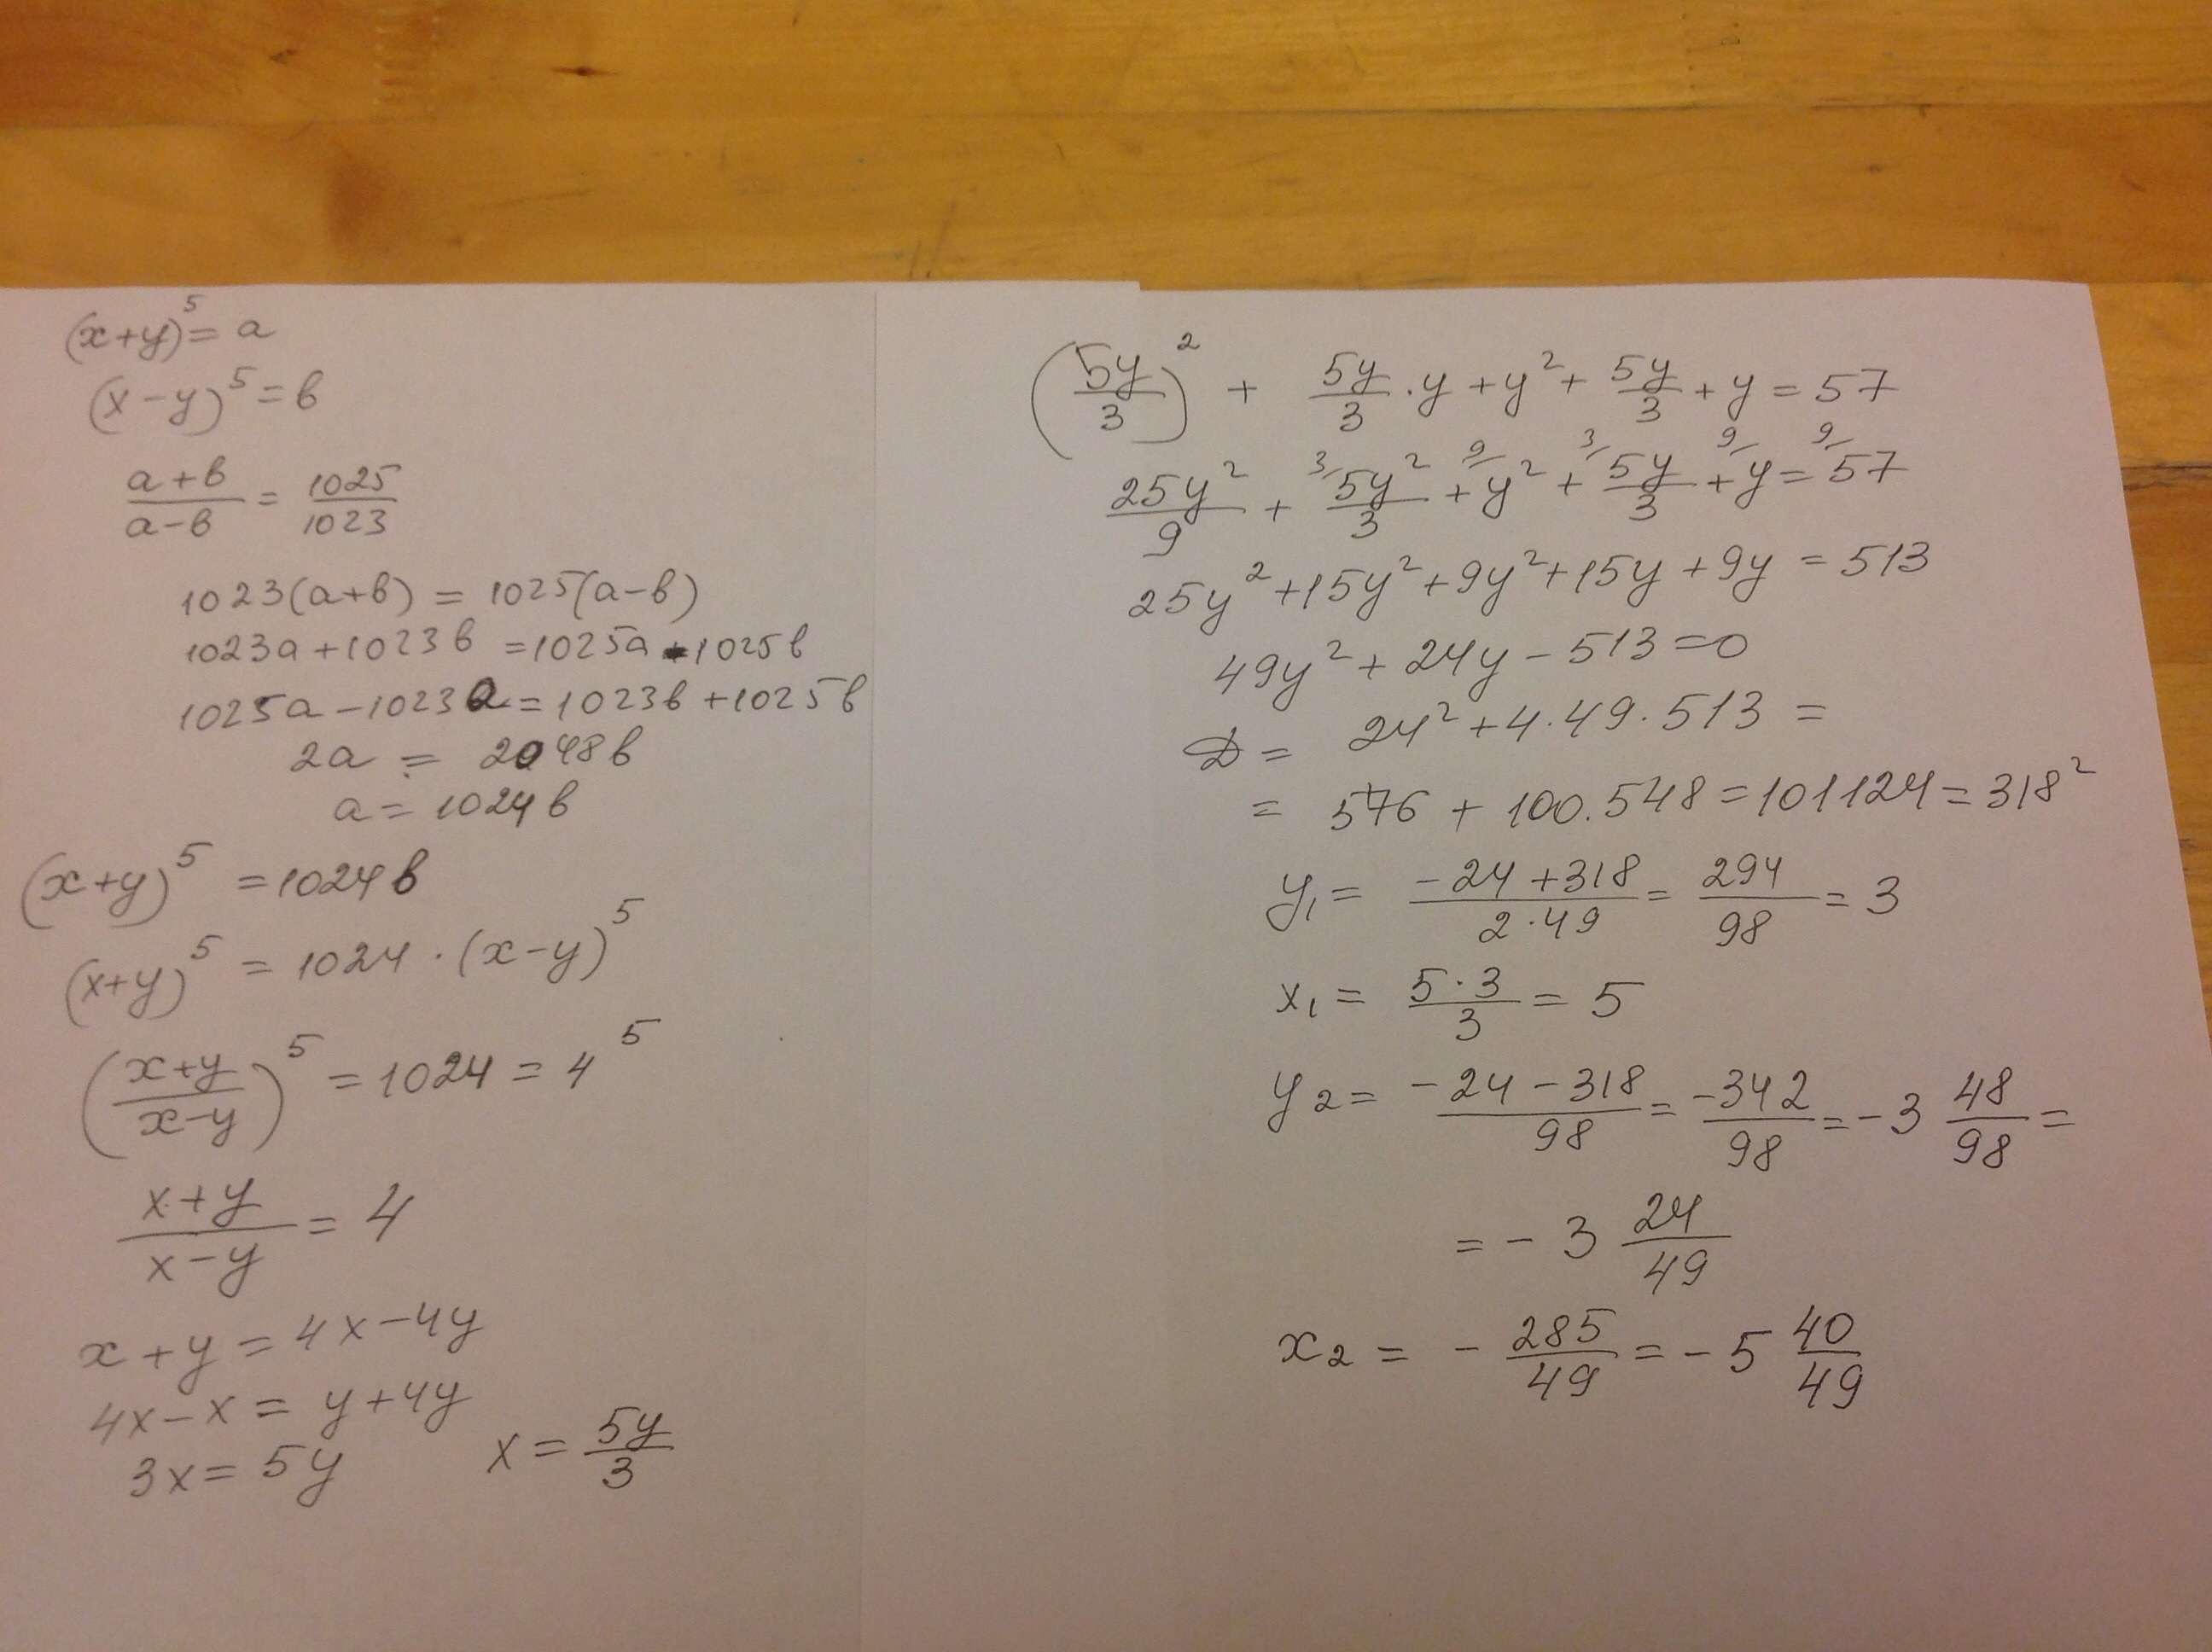 (x+y)⁵ = a
(x-y)⁵ = b
(a+b)/(a-b) = 1025/1023
1023(a+b) = 1025(a-b)
1023a+1023b = 1025a-1025b
1025a-1023a = 1023b+1025b
2a = 2048b
a = 1024b
(x+y)⁵ = 1024b
(x+y)⁵ = 1024 · (x-y)⁵
((x+y)/(x-y))⁵ = 1024 = 4⁵
(x+y)/(x-y) = 4
x+y = 4x-4y
4x-x = y+4y
3x = 5y x = 5y/3
(5y/3)² + 5y/3 · y + y² + 5y/3 + y = 57
25y²/9 + ³⁄5y²/3 + ⁹⁄y² + ³⁄5y/3 + ⁹⁄y = ⁹⁄57
25y²+15y²+9y²+15y+9y = 513
49y²+24y-513=0
D = 24²+4·49·513 =
= 576 + 100.548 = 101124 = 318²
y₁ = (-24+318)/(2·49) = 294/98 = 3
x₁ = (5·3)/3 = 5
y₂ = (-24-318)/98 = -342/98 = -3 48/98 =
= -3 24/49
x₂ = -285/49 = -5 40/49